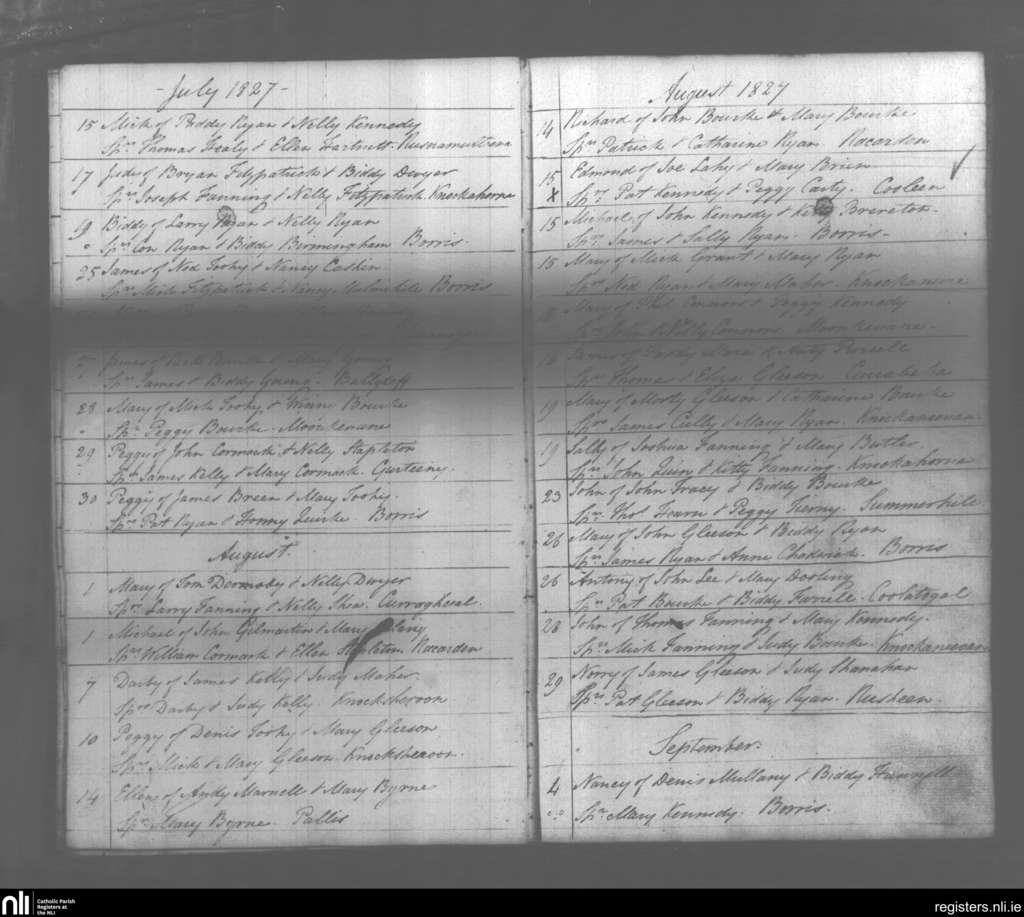 - July 1827 -
15 Mick of Paddy Ryan & Nelly Kennedy
Sprs Thomas Healy & Ellen Hartnett.
17 Judy of Bryan Fitzpatrick & Biddy Dwyer
Sprs Joseph Fanning & Nelly Fitzpatrick Knockahorna
19 Biddy of Larry Ryan & Nelly Ryan
Sprs Con Ryan & Biddy Birmingham Borris.
25 James of Ned Toohy & Nancy Caskin
Sprs Mick Fitzpatrick & Nancy Borris
James of Bourke & Mary Young
Sprs James & Biddy Young.
28 Mary of Mick Toohy & Winny Bourke
Spr Peggy Bourke. Moonkenane
29 Peggy of John Cormack & Nelly Stapleton
Sprs James Kelly & Mary Cormack Gurteeny.
30 Peggy of James Breen & Mary Toohy.
Sprs Pat Ryan & Honny Quirke. Borris
August
1 Mary of Tom Dermody & Nelly Dwyer
Sprs Larry Fanning & Nelly Shea. Curragheal.
1 Michael of John Gilmartin & Mary
Sprs William Cormack & Ellen Stapleton. Rocardon
7 Darby of James Kelly & Judy Maher.
Sprs Darby & Judy Kelly.
10 Peggy of Denis Toohy & Mary Gleeson
Sprs Mick & Mary Gleeson.
14 Ellen of Andy Marnell & Mary Byrne
Spr Mary Byrne. Pallis
August 1827
14 Richard of John Bourke & Mary Bourke
Sprs Patrick & Catharine Ryan. Rocardon
15 Edmond of Joe Lahy & Mary Brien
x Sprs Pat Kennedy & Peggy Carty. Cooleen
15 Michael of John Kennedy & Kitty Brereton.
Sprs James & Sally Ryan. Borris -
15 Mary of Mick Grant & Mary Ryan
Sprs Ned Ryan & Mary Maher.
18 Mary of Phil Connors & Peggy Kennedy
Sprs John & Nelly Connors. Moonkenane.
18 James of Paddy & Purcell
Sprs Thomas & Eliza Gleeson
19 Mary of Morty Gleeson & Catharine Bourke
Sprs James Cully & Mary Ryan.
19 Sally of Joshua Fanning & Mary Butler.
Sprs John Quin & Kitty Fanning. Knockahorna
23 John of John Tracy & Biddy Bourke
Sprs Thos & Peggy Tierny. Summerhill
26 Mary of John Gleeson & Biddy Ryan
Sprs James Ryan & Anne Chadwick. Borris
26 Antony of John Lee & Mary Dooling
Sprs Pat Bourke & Biddy Farrell.
28 John of Thomas Fanning & Mary Kennedy.
Sprs Mick Fanning & Judy Bourke.
29 Norry of James Gleeson & Judy Shanahan
Sprs Pat Gleeson & Biddy Ryan. Rusheen.
September.
4 Nancy of Denis Mullany & Biddy
Spr Mary Kennedy. Borris.
nli
Catholic Parish
Registers at
the NLI
registers.nli.ie